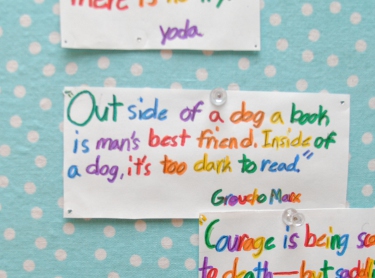 There is no
yoda
"Outside of a dog a book
is man's best friend. Inside of
a dog, it's too dark to read."
Groucho Marx
Courage is being
to death—but